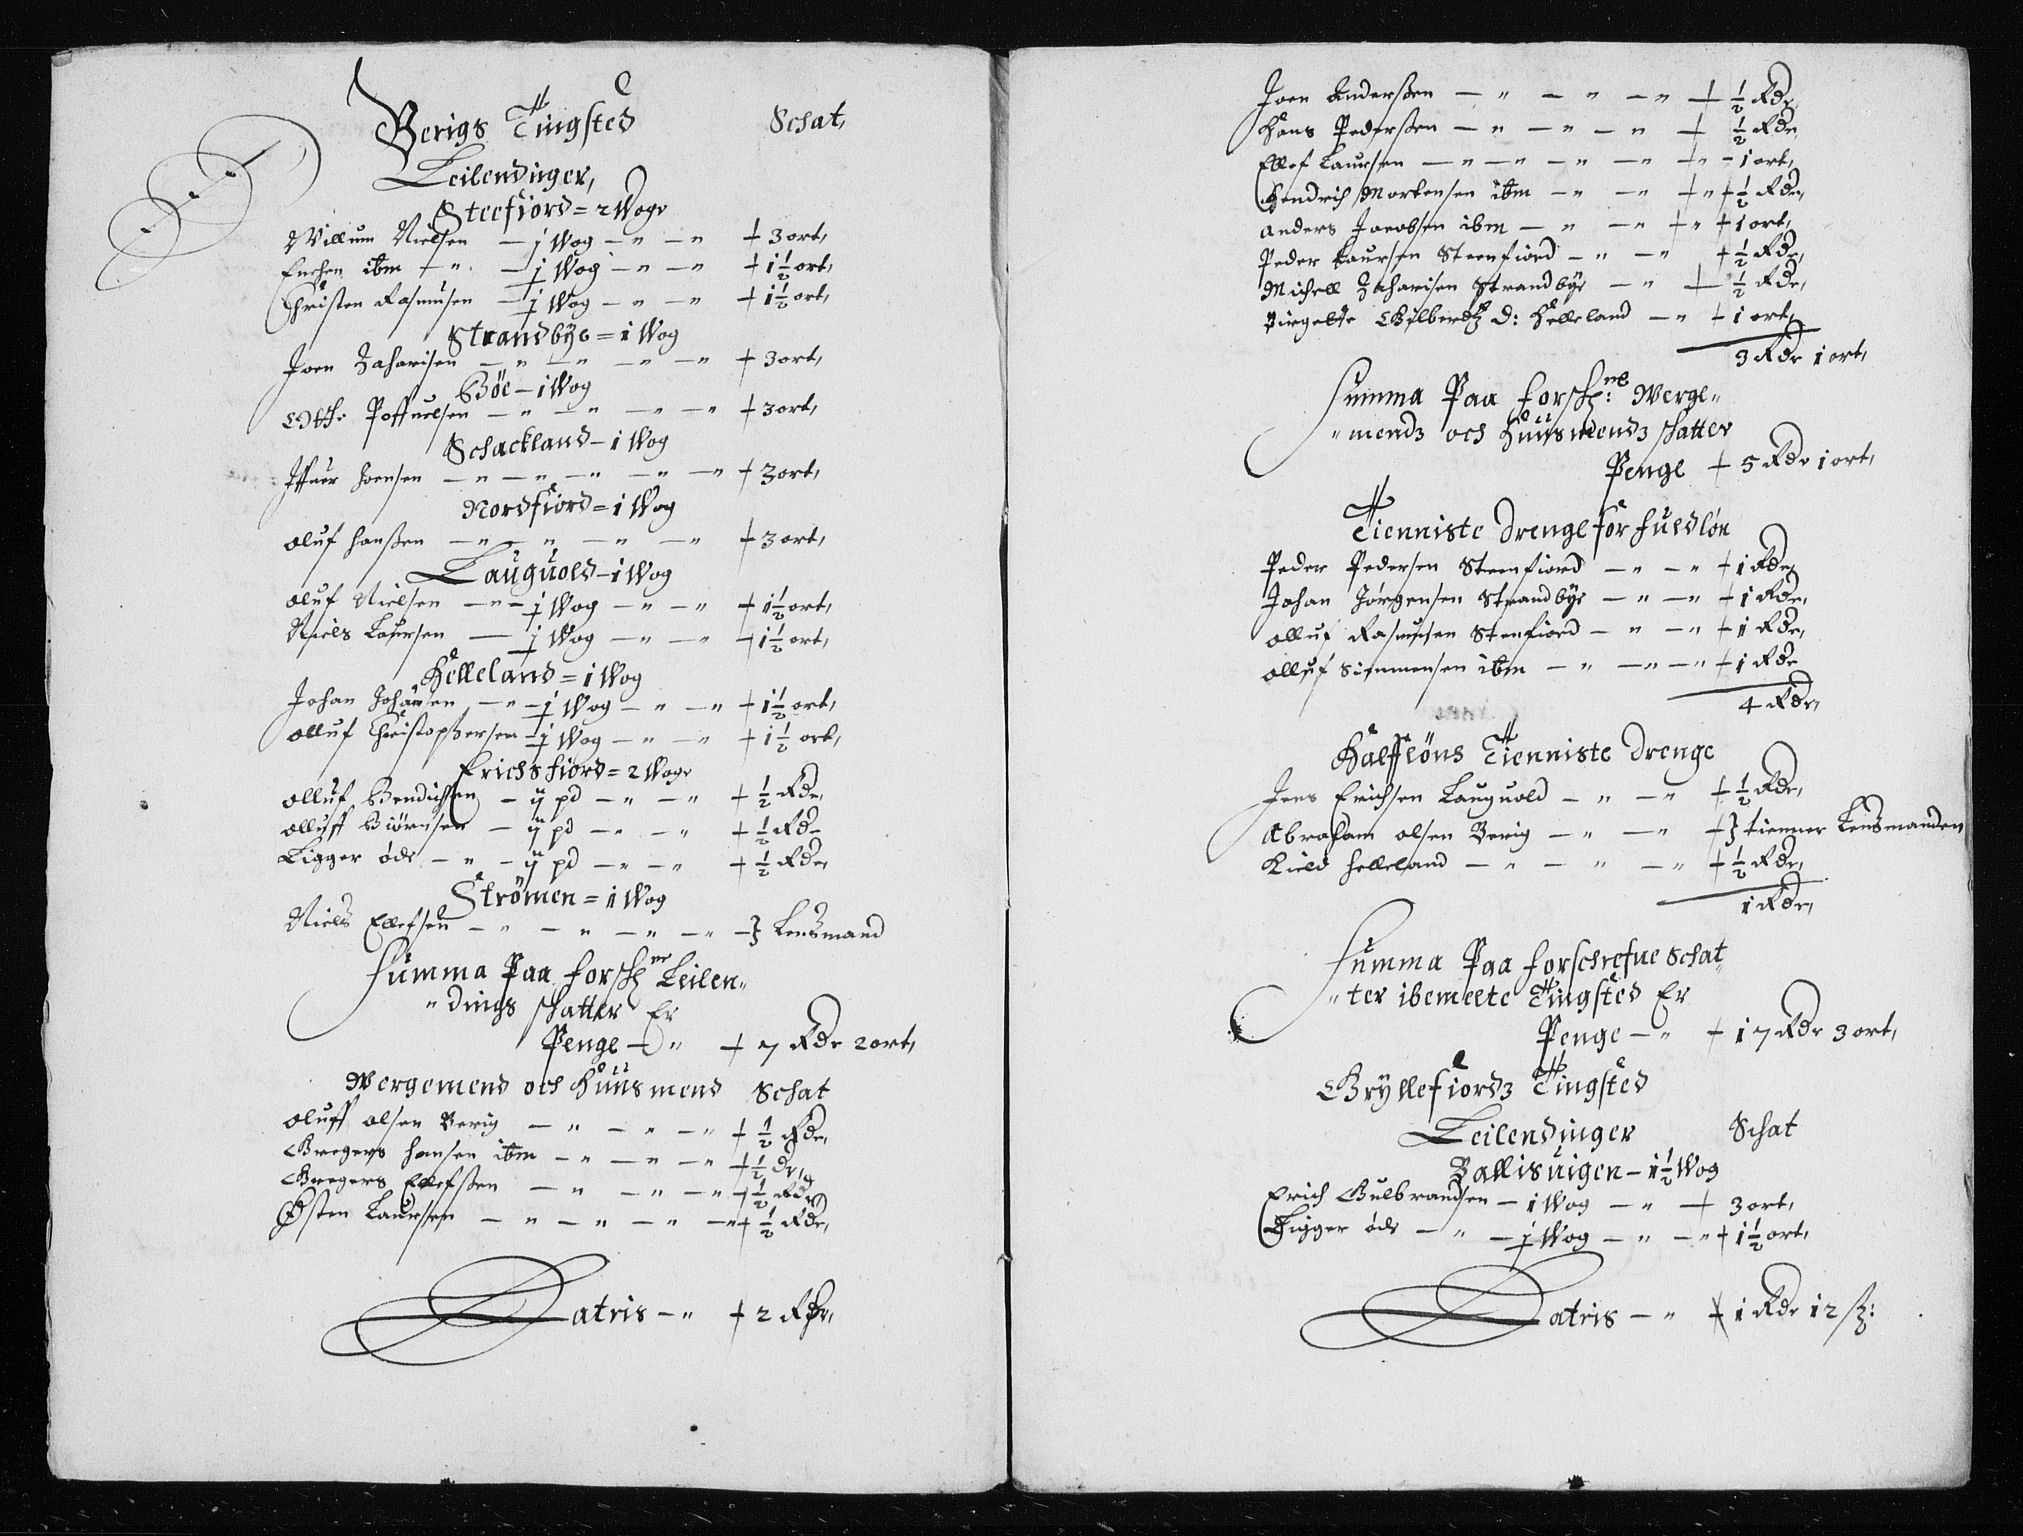 Berigs Tingsted Schat,
Leilendinger,
Steefiord = 2 Woge
Willum Nielsen — j Wog — " — " + 3 ort,
Enchen ibm + " — j Wog — " — " + 1½ ort,
Christen Rasmusen — j Wog — " — " + 1½ ort,
Strandbye = i Wog
Joen Zacharisen — " — " — " — " + 3 ort,
Böe — i Wog
Otthe Poffuelsen — " — " — " — " + 3 ort,
Schackland — i Wog
Iffuer Joensen — " — " — " — " — " + 3 ort,
Nordfiord = i Wog
Oluf Hanßen — " — " — " — " + 3 ort,
Lauguold — i Wog
Oluf Nielsen — " — j Wog — " — " + 1½ ort,
Niels Laursen — j Wog — " — " + 1½ ort,
Helleland = i Wog
Johan Johansen — " — j Wog — " — " + 1½ ort,
Olluf Christophersen — j Wog — " — " + 1½ ort,
Erichsfiord = 2 Woge
Olluf Bendichsen — ij pd — " — " + ½ Rdr,
Olluff Biörnsen — ij pd — " — " + ½ Rd
Ligger öde — " — ij pd — " — " + ½ Rdr,
Strömen = i Wog
Niels Ellefsen — " — " — " — " — } Lensmand
Summa Paa forschne Leilen"
"dings schatter Er
Penge — " + 7 Rdr 2 ort,
Wergemend och Huusmend Schat
Oluff Olsen Berig — " — " — " + ½ Rdr,
Gregers Hansen ibm — " — " — " + ½ dr,
Gregers Ellefßen — " — " — " + ½ Rdr
Østen Laursen — " — " — " — " + ½ Rdr,
Latris — " + 2 Rdr,
Joen Anderßen — " — " — " + ½ Rdr
Hans Pederßen — " — " — " + ½ Rdr,
Ellef Laursen — " — " — " — " + " — 1 ort,
Hendrich Mortensen ibm — " — " + " + ½ Rdr,
Anders Jacobsen ibm — " — " + " + 1 ort,
Peder Laursen Steenfiord — " — " + ½ Rdr,
Michell Zacharisen Strandbye — " + ½ Rdr,
Birgette Gilberdtz d: Helleland — " + 1 ort,
3 Rdr 1 ort,
Summa Paa forschne: Werge"
"mendz och Huusmendz schatter
Penge + 5 Rdr 1 ort,
Tienniste drenge for fuldløn
Peder Pedersen Steenfiord — " — " + 1 Rdr
Johan Jørgensen Strandbye — " — " + 1 Rdr,
Olluf Rasmusen Stenfiord — " — " + 1 Rdr,
Olluf Simmensen ibm — " — " — " + 1 Rdr
4 Rdr,
Halfflöns Tienniste drenge
Jens Erichsen Lauguold — " — " + ½ Rdr,
Abraham Olsen Berig — " — " + } tienner Lensmanden
Kield Helleland — " — " — " + ½ Rdr,
1 Rdr,
Summa Paa forschrefne Schat"
"ter ibemelte Tingsted Er
Penge — " + 17 Rdr 3 ort,
Gryllefiordz Tingsted
Leilendinger Schat
Ballisuigen — 1½ Wog
Erich Gulbrandsen — i Wog — " + 3 ort,
Ligger øde — " — j Wog — " — " + 1½ ort,
Latris — " + 1 Rdr 12 sz: